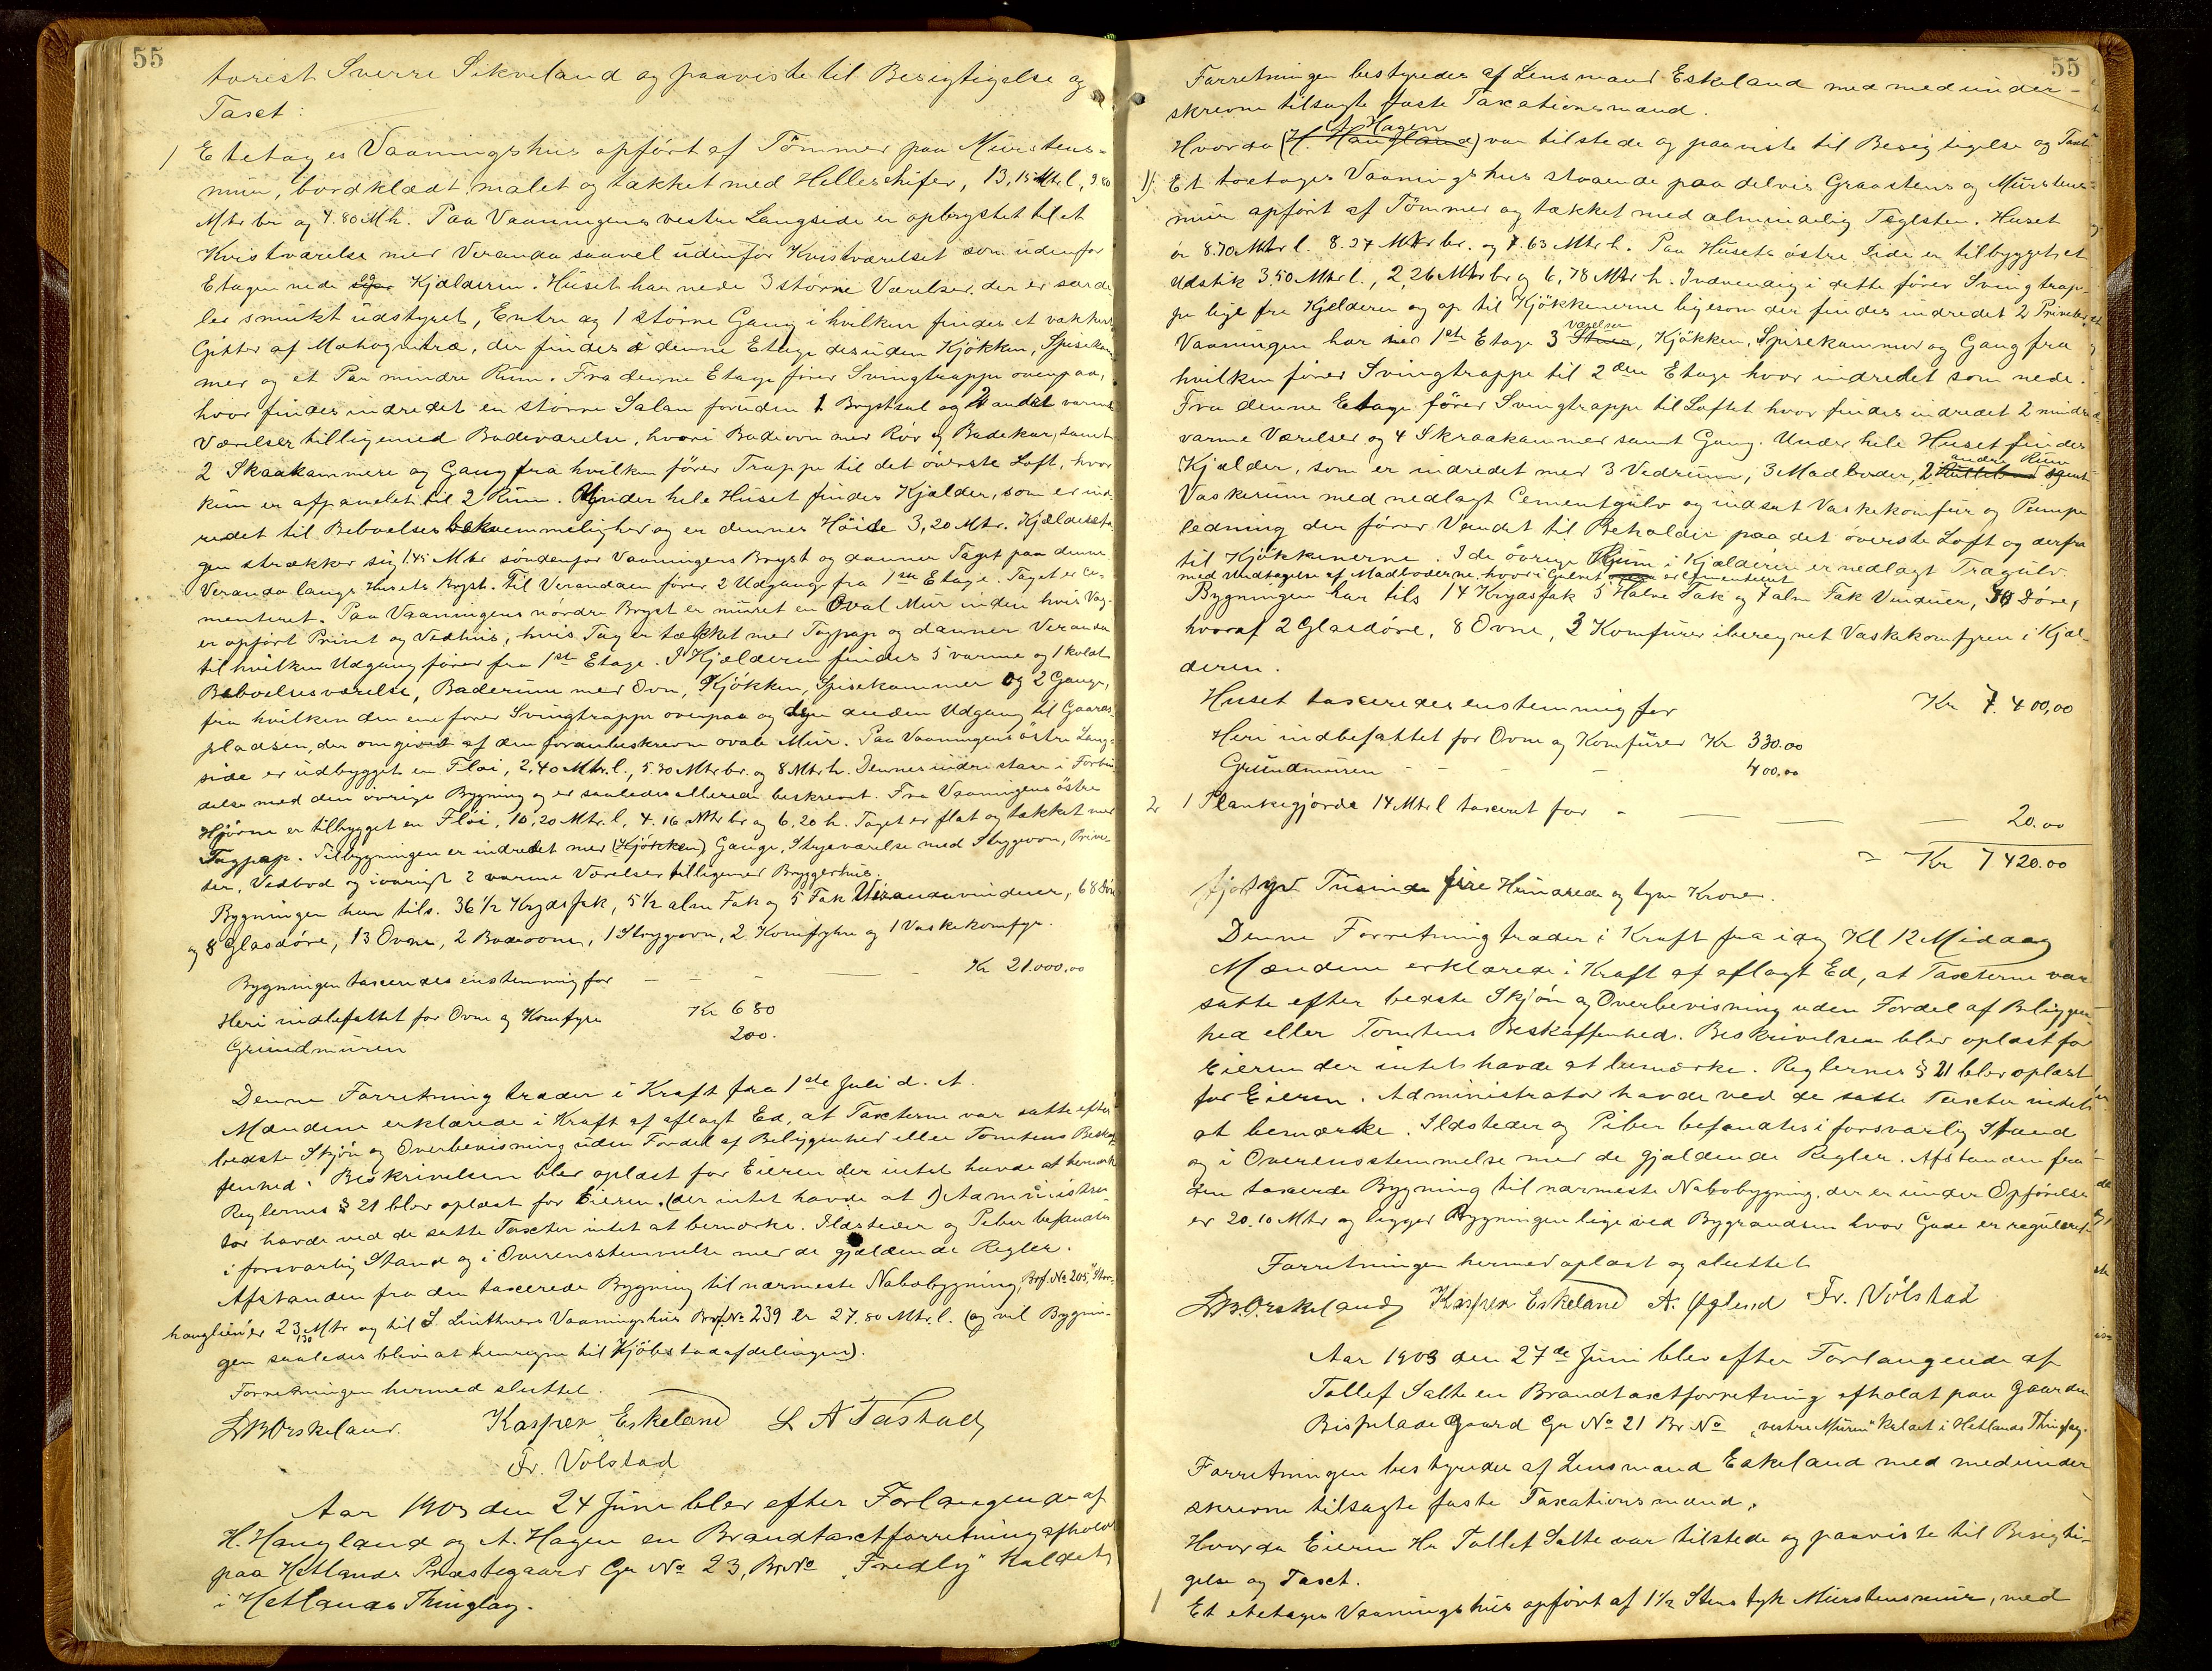 55
torist Sverre Sikveland og paaviste til Besigtigelse og
Taxt:
1 Etetages Vaaningshus opført af Tömmer paa Murstens-
mur, bordklædt malet og tækket med Helleskifer, 13,15 Mtr. l., 9.80
Mtr br og 4.80 M h. Paa Vaaningens vestre Langside er opbrystet til et
Kvistværelse med Veranda saavel udenfor Kvistværelset som udenfor
Etagen nede og Kjælderen. Huset har nede 3 större Værelser, der er særde-
les smukt udstyret, Entre og 1 större Gang i hvilken findes et vakkert
Gitter af Mahognitræ, der findes i denne Etage desuden Kjökken, Spisekam
mer og et Par mindre Rum. Fra denne Etage förer Svingtrappe ovenpaa,
hvor findes indredet en större Salan foruden 1 Brystsal og 2 andre varme
Værelser tilligemed Badeværelse, hvori Badeovn med Rör og Badekar, samt
2 Skraakammere og Gang fra hvilken förer Trappe til det överste Loft, hvor
kun er afpanelet til 2 Rum. Under hele Huset findes Kjælder, som er ind-
redet til Beboelsesbekvemmelighed og er dennes Höide 3,20 Mtr. Kjældereta
gen strækker sig 1.45 Mtr söndenfor Vaaningens Bryst og danner Taget paa denne
Veranda langs Husets Bryst. Til Verandaen förer 2 Udgange fra 1ste Etage. Taget er ce-
menteret. Paa Vaaningens nordre Bryst er muret en Oval Mur inden hvis Væg-
er opført Privet og Vedhus, hvis Tag er tækket med Tagpap og danner Veranda
til hvilken Udgang förer fra 1ste Etage. I Kjælderen findes 5 varme og 1 koldt
Beboelsesværelse, Baderum med Ovn, Kjökken, Spisekammer og 2 Gange,
fra hvilken den ene förer Svingtrappe ovenpaa og den anden Udgang til Gaards-
pladsen, der omgives af den foranbeskrevne ovale Mur. Paa Vaaningens östre Lang-
side er udbygget en Flöi, 2,40 Mtr. l., 5.30 Mtr br. og 8 Mtr h. Dennes indre staar i Forbin
delse med den övrige Bygning og er saaledes allerede beskrevet. Fra Vaaningens östre
Hjörne er tilbygget en Flöi, 10,20 Mtr. l, 4.16 Mtr br og 6,20 h. Taget er flat og tækket med
Tagpap. Tilbygningen er indredet med (Kjökken) Gange, Strygeværelse med Strygeovn, Prive-
der, Vedbod og iövrigt 2 varme Værelser tilligemed Bryggerhus.
Bygningen har tils. 36 1/2 Krydsfak, 5 1/2 alm Fak og 5 Fak Verandavinduer, 68 Döre
og 8 Glasdöre, 13 Ovne, 2 Badeovne, 1 Strygeovn, 2 Komfyhre og 1 Vaskekomfyr.
Bygningen taxeredes enstemmig for – – – — – Kr 21.000.00
Heri indbefattet for Ovne og Komfyre Kr 680
Grundmuren 200.
Denne Forretning træder i Kraft fra 1ste Juli d. A.
Mændene erklærede i Kraft af aflagt Ed, at Taxterne var satte efter
bedste Skjön og Overbevisning uden Fordel af Beliggenhed eller Tomtens Beskaf
fenhed. Beskrivelsen blev oplæst for Eieren der intet havde at bemærke
Reglernes § 21 blev oplæst for Eieren. (der intet havde at) Administra-
tor havde ved de satte Taxter intet at bemærke. Ildsteder og Piber befandtes
i forsvarlig Stand og i Overensstemmelse med de gjældende Regler.
Afstanden fra den taxerede Bygning til nærmeste Nabobygning, Brf. No 205, "Stor-
haugliën" er 23,130 Mtr og til S. Linthners Vaaningshus Brf. No 239 er 27.80 Mtr. l. (og vel Bygnin-
gen saaledes blive at henregne til Kjöbstadafdelingen).
Forretningen hermed sluttet.
LBOrskeland. Kasper Eskeland L A Tastad
Fr. Volstad
Aar 1903 den 24 Juni blev efter Forlangende af
H. Haugland og A. Hagen en Brandtaxtforretning afholdt
paa Hetlands Præstegaard Gr No 23, BrNo "Fredly" kaldet
i Hetlands Thinglag.
55
Forretningen bestyredes af Lensmand Eskeland med medunder-
skrevne tilsagte faste Taxationsmænd.
Hvorda (H. Haugland) A Hagen var tilstede og paaviste til Besigtigelse og Taxt
1). Et toetages Vaaningshus staaende paa delvis Graastens og Murstens-
mur opført af Tömmer og tækket med almindelig Taglsten. Huset
er 8.70 Mtr l. 8.27 Mtr br. og 7.63 Mtr h. Paa Husets östre Side er tilbygget et
Udstik 3.50 Mtr l., 2,26 Mtr br og 6,78 Mtr h. Indvendig i dette förer Svingtrap-
pe lige fra Kjelderen og op til Kjökkenerne ligesom der findes indredet 2 Priveter
Vaaningen har i 1ste Etage 3 Stuer værelser, Kjökken, Spisekammer og Gang fra
hvilken förer Svingtrappe til 2den Etage hvor indredet som nede.
Fra denne Etage förer Svingtrappe til Loftet hvor findes indredet 2 mindre
varme Værelser og 4 Skraakammer samt Gang. Under hele Huset findes
Kjælder, som er indredet med 3 Vedrum, 3 Madboder, 2 andre Rum samt
Vaskerum med nedlagt Cementgulv og indsat Vaskekomfur og Pumpe
ledning der förer Vandet til Beholder paa det överste Loft og derfra
til Kjökkenerne. I de övrige Rum i Kjælderen er nedlagt Trægulv
med undtagelse af Madboderne hvori Gulvet er cementeret
Bygningen har tils 14 Krydsfak 5 Halve Fak og 7 alm Fak Vinduer, Döre,
hvoraf 2 Glasdöre, 8 Ovne, 3 Komfurer iberegnet Vaskekomfyren i Kjæl-
deren.
Huset taxeredes enstemmig for Kr 7.400,00
Heri indbefattet for Ovne og Komfürer Kr 330.00
Grundmuren – – – 400.00
2, 1 Plankegjærde 14 Mtr l taxeret for – — — — 20.00
= Kr 7420.00
syv Tusinde fire Hundrede og tyve Kroner.
Denne Forretning træder i Kraft fra idag Kl 12 Middag
Mændene erklærede i Kraft af aflagt Ed, at Taxterne var
satte efter bedste Skjön og Overbevisning uden Fordel af Beliggen-
hed eller Tomtens Beskaffenhed. Beskrivelsen blev oplæst for
Eieren der intet havde at bemærke. Reglernes § 21 blev oplæst
for Eieren. Administrator havde ved de satte Taxter intet
at bemærke. Ildsteder og Piber befandtes i forsvarlig Stand
og i Overensstemmelse med de gjældende Regler. Afstanden fra
den taxerede Bygning til nærmeste Nabobygning, der er under Opförelse
er 20.10 Mtr og ligger Bygningen lige ved Bygrændsen hvor Gade er reguleret
Forretningen hermed oplæst og sluttet
LBOrskeland Kasper Eskeland A. Øglend Fr. Völstad
Aar 1903 den 27de Juni blev efter Forlangende af
Tollef Salte en Brandtaxtforretning afholdt paa Gaarden
Bispelade Gaard Gr No 21 Br No "vestre Muren" kaldet i Hetlands Thinglag.
Forretningen bestyredes af Lensmand Eskeland med medunder
skrevne tilsagte faste Taxationsmænd.
Hvorda Eieren Hr Tollef Salte var tilstede og paaviste til Besigti-
gelse og Taxt.
1 Et etetages Vaaningshus opført af 1 1/2 Stens tyk Murstensmur, med